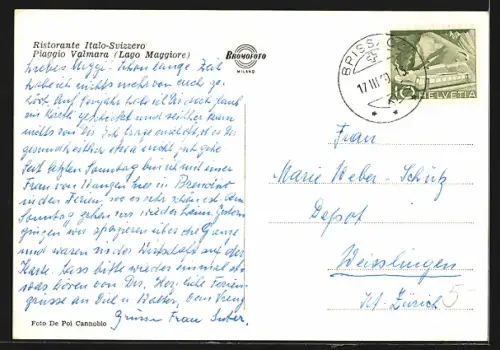 Ristorante Italo-Svizzero
Piaggio Valmara (Lago Maggiore)
BROMOFOTO
MILANO
BRISSAGO
17 III
10
HELVETIA
Liebes Schon lange Zeit
habe ich nichts mehr von euch ge-
hört. Auf Neujahr habe ich Dir doch glaub
ein geschickt und seither kam
nichts von Dir. Ich frage ob es Dir
gesundheitlich etwa nicht gut gehe
Seit letzten Sonntag bin ich mit einer
Frau von Wangen hier in Brenscino
in den Ferien, wo es sehr schön ist. Am
Sonntag gehen wir wieder heim. Gestern
gingen wir spazieren über die Grenze
und waren in der Wirtschaft auf der
Karte. Lass bitte wieder einmal et-
was hören von Dir. Herzliche Ferien-
grüsse an Dich u. Walter, Dein
Grüsse Frau Suter.
Frau
Marie Weber-Schütz
Depot
Weisslingen
Kt. Zürich
5
Foto De Poi Cannobio